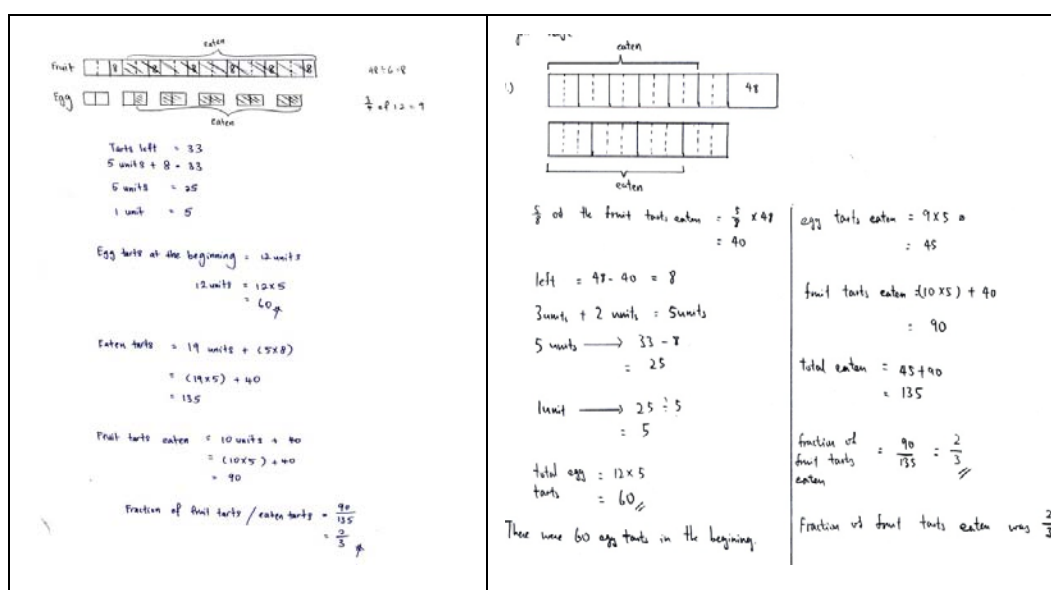 eaten
Fruit 8 8 8 8 8 8 48÷6=8
Egg 3/4 of 12 = 9
eaten
Tarts left = 33
5 units + 8 = 33
5 units = 25
1 unit = 5
Egg tarts at the beginning = 12 units
12 units = 12x5
= 60
Eaten tarts = 19 units + (5x8)
= (19x5) + 40
= 135
Fruit tarts eaten = 10 units + 40
= (10x5) + 40
= 90
Fraction of fruit tarts / eaten tarts = 90/135
= 2/3
eaten
1)
48
eaten
5/6 of the fruit tarts eaten = 5/6 x 48
= 40
left = 48 - 40 = 8
3 units + 2 units = 5 units
5 units → 33 - 8
= 25
1 unit → 25 ÷ 5
= 5
total egg tarts = 12 x 5
= 60
There were 60 egg tarts in the begining.
egg tarts eaten = 9 x 5
= 45
fruit tarts eaten = (10 x 5) + 40
= 90
total eaten = 45 + 90
= 135
fraction of fruit tarts eaten = 90/135 = 2/3
Fraction of fruit tarts eaten was 2/3